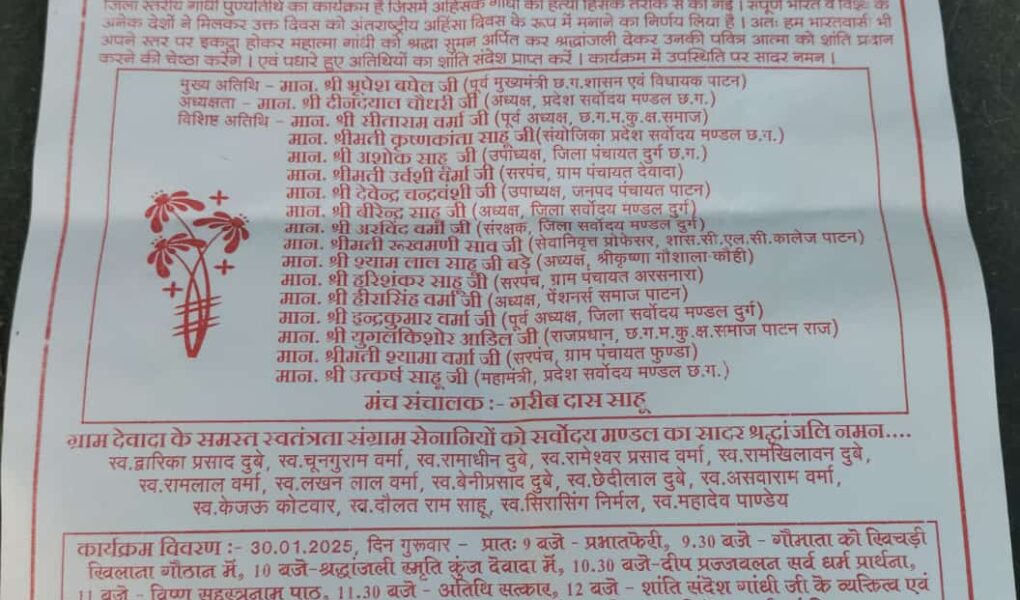 जिला स्तरीय गांधी पुण्यतिथि का कार्यक्रम है जिसमें अहिंसक गांधी की हत्या हिंसक तरीके से की गई। संपूर्ण भारत व विश्व के
अनेक देशों ने मिलकर उक्त दिवस को अंतराष्ट्रीय अहिंसा दिवस के रूप में मनाने का निर्णय लिया है। अतः हम भारतवासी भी
अपने स्तर पर इकट्ठा होकर महात्मा गांधी को श्रद्धा सुमन अर्पित कर श्रद्धांजली देकर उनकी पवित्र आत्मा को शांति प्रदान
करने की चेष्ठा करेंगे। एवं पधारे हुए अतिथियों का शांति संदेश प्राप्त करें। कार्यक्रम में उपस्थिति पर सादर नमन।
मुख्य अतिथि - मान. श्री भूपेश बघेल जी (पूर्व मुख्यमंत्री छ.ग.शासन एवं विधायक पाटन)
अध्यक्षता - मान. श्री दीनदयाल चौधरी जी (अध्यक्ष, प्रदेश सर्वोदय मण्डल छ.ग.)
विशिष्ट अतिथि - मान. श्री सीताराम वर्मा जी (पूर्व अध्यक्ष, छ.ग.म.कु.क्ष.समाज)
मान. श्रीमती कृष्णकांता साहू जी(संयोजिका प्रदेश सर्वोदय मण्डल छ.ग.)
मान. श्री अशोक साहू जी (उपाध्यक्ष, जिला पंचायत दुर्ग छ.ग.)
मान. श्रीमती उर्वशी वर्मा जी (सरपंच, ग्राम पंचायत देवादा)
मान. श्री देवेन्द्र चन्द्रवंशी जी (उपाध्यक्ष, जनपद पंचायत पाटन)
मान. श्री बीरेन्द्र साहू जी (अध्यक्ष, जिला सर्वोदय मण्डल दुर्ग)
मान. श्री अरविंद वर्मा जी (संरक्षक, जिला सर्वोदय मण्डल दुर्ग)
मान. श्रीमती रूखमणी साव जी (सेवानिवृत्त प्रोफेसर, शास.सी.एल.सी.कालेज पाटन)
मान. श्री श्याम लाल साहू जी बड़े (अध्यक्ष, श्रीकृष्णा गौशाला कौही)
मान. श्री हरिशंकर साहू जी (सरपंच, ग्राम पंचायत अरसनारा)
मान. श्री हीरासिंह वर्मा जी (अध्यक्ष, पेंशनर्स समाज पाटन)
मान. श्री इन्द्रकुमार वर्मा जी (पूर्व अध्यक्ष, जिला सर्वोदय मण्डल दुर्ग)
मान. श्री युगलकिशोर आडिल जी (राजप्रधान, छ.ग.म.कु.क्ष.समाज पाटन राज)
मान. श्रीमती श्यामा वर्मा जी (सरपंच, ग्राम पंचायत फुण्डा)
मान. श्री उत्कर्ष साहू जी (महामंत्री, प्रदेश सर्वोदय मण्डल छ.ग.)
मंच संचालक :- गरीब दास साहू
ग्राम देवादा के समस्त स्वतंत्रता संग्राम सेनानियों को सर्वोदय मण्डल का सादर श्रद्धांजलि नमन....
स्व.द्वारिका प्रसाद दुबे, स्व.चूनगुराम वर्मा, स्व.रामाधीन दुबे, स्व.रामेश्वर प्रसाद वर्मा, स्व.रामखिलावन दुबे,
स्व.रामलाल वर्मा, स्व.लखन लाल वर्मा, स्व.बेनीप्रसाद दुबे, स्व.छेदीलाल दुबे, स्व.असवाराम वर्मा,
स्व.केजऊ कोटवार, स्व.दौलत राम साहू, स्व.सिरासिंग निर्मल, स्व.महादेव पाण्डेय
कार्यक्रम विवरण :- 30.01.2025, दिन गुरूवार - प्रातः 9 बजे - प्रभातफेरी, 9.30 बजे - गौमाता को खिचड़ी
खिलाना गौठान में, 10 बजे-श्रद्धांजली स्मृति कुंज देवादा में, 10.30 बजे-दीप प्रज्जवलन सर्व धर्म प्रार्थना,
11 बजे - विष्णु सहस्त्रनाम पाठ, 11.30 बजे - अतिथि सत्कार, 12 बजे - शांति संदेश गांधी जी के व्यक्तित्व एवं